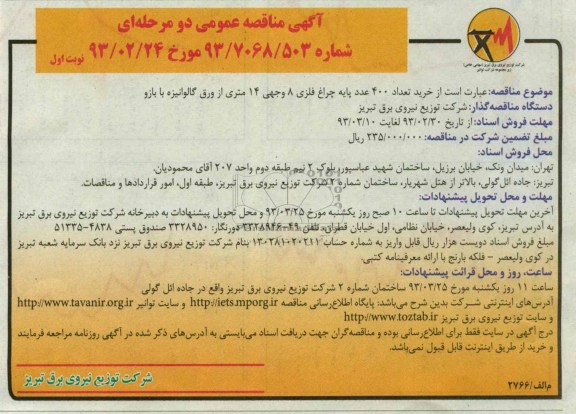 آگهی مناقصه عمومی دو مرحله‌ای
شماره ۹۳/۷۰۶۸/۵۰۳ مورخ ۹۳/۰۲/۲۴
نوبت اول
شرکت توزیع نیروی برق تبریز (سهامی خاص)
موضوع مناقصه: عبارت است از خرید تعداد ۴۰۰ عدد پایه چراغ فلزی ۸ وجهی ۱۴ متری از ورق گالوانیزه با بازو
دستگاه مناقصه‌گذار: شرکت توزیع نیروی برق تبریز
مهلت فروش اسناد: از تاریخ ۹۳/۰۲/۳۰ لغایت ۹۳/۰۳/۱۰
مبلغ تضمین شرکت در مناقصه: ۲۳۵/۰۰۰/۰۰۰ ریال
محل فروش اسناد:
تهران: میدان ونک، خیابان برزیل، ساختمان شهید عباسپور، بلوک ۲ نیم طبقه دوم واحد ۲۰۷ آقای محمودیان.
تبریز: جاده ائل‌گولی، بالاتر از هتل شهریار، ساختمان شماره ۲ شرکت توزیع نیروی برق تبریز، طبقه اول، امور قراردادها و مناقصات.
مهلت و محل تحویل پیشنهادات:
آخرین مهلت تحویل پیشنهادات تا ساعت ۱۰ صبح روز یکشنبه مورخ ۹۳/۰۳/۲۵ و محل تحویل پیشنهادات به دبیرخانه شرکت توزیع نیروی برق تبریز
به آدرس تبریز، کوی ولیعصر، خیابان نظامی، اول خیابان قطران، تلفن ۴۹-۳۳۲۸۹۴۶ دورنگار: ۳۳۲۸۹۵۰ صندوق پستی ۴۸۳۸-۵۱۳۳۵
مبلغ فروش اسناد دویست هزار ریال قابل واریز به شماره حساب ۲۰۲۱۱-۱۳۰۲۸۱ بنام شرکت توزیع نیروی برق تبریز نزد بانک سرمایه شعبه تبریز
در کوی ولیعصر – فلکه بارنج با ارائه معرفینامه کتبی.
ساعت، روز و محل قرائت پیشنهادات:
ساعت ۱۱ روز یکشنبه مورخ ۹۳/۰۳/۲۵ ساختمان شماره ۲ شرکت توزیع نیروی برق تبریز واقع در جاده ائل گولی
آدرس‌های اینترنتی شرکت بدین شرح می‌باشد: پایگاه اطلاع‌رسانی مناقصه http://iets.mporg.ir و سایت توانیر http://www.tavanir.org.ir
و سایت توزیع نیروی برق تبریز http://www.toztab.ir
درج آگهی در سایت فقط برای اطلاع‌رسانی بوده و مناقصه‌گران جهت دریافت اسناد می‌بایستی به آدرس‌های ذکر شده در آگهی روزنامه مراجعه فرمایند
و خرید از طریق اینترنت قابل قبول نمی‌باشد.
شرکت توزیع نیروی برق تبریز
م‌الف/۲۷۶۶